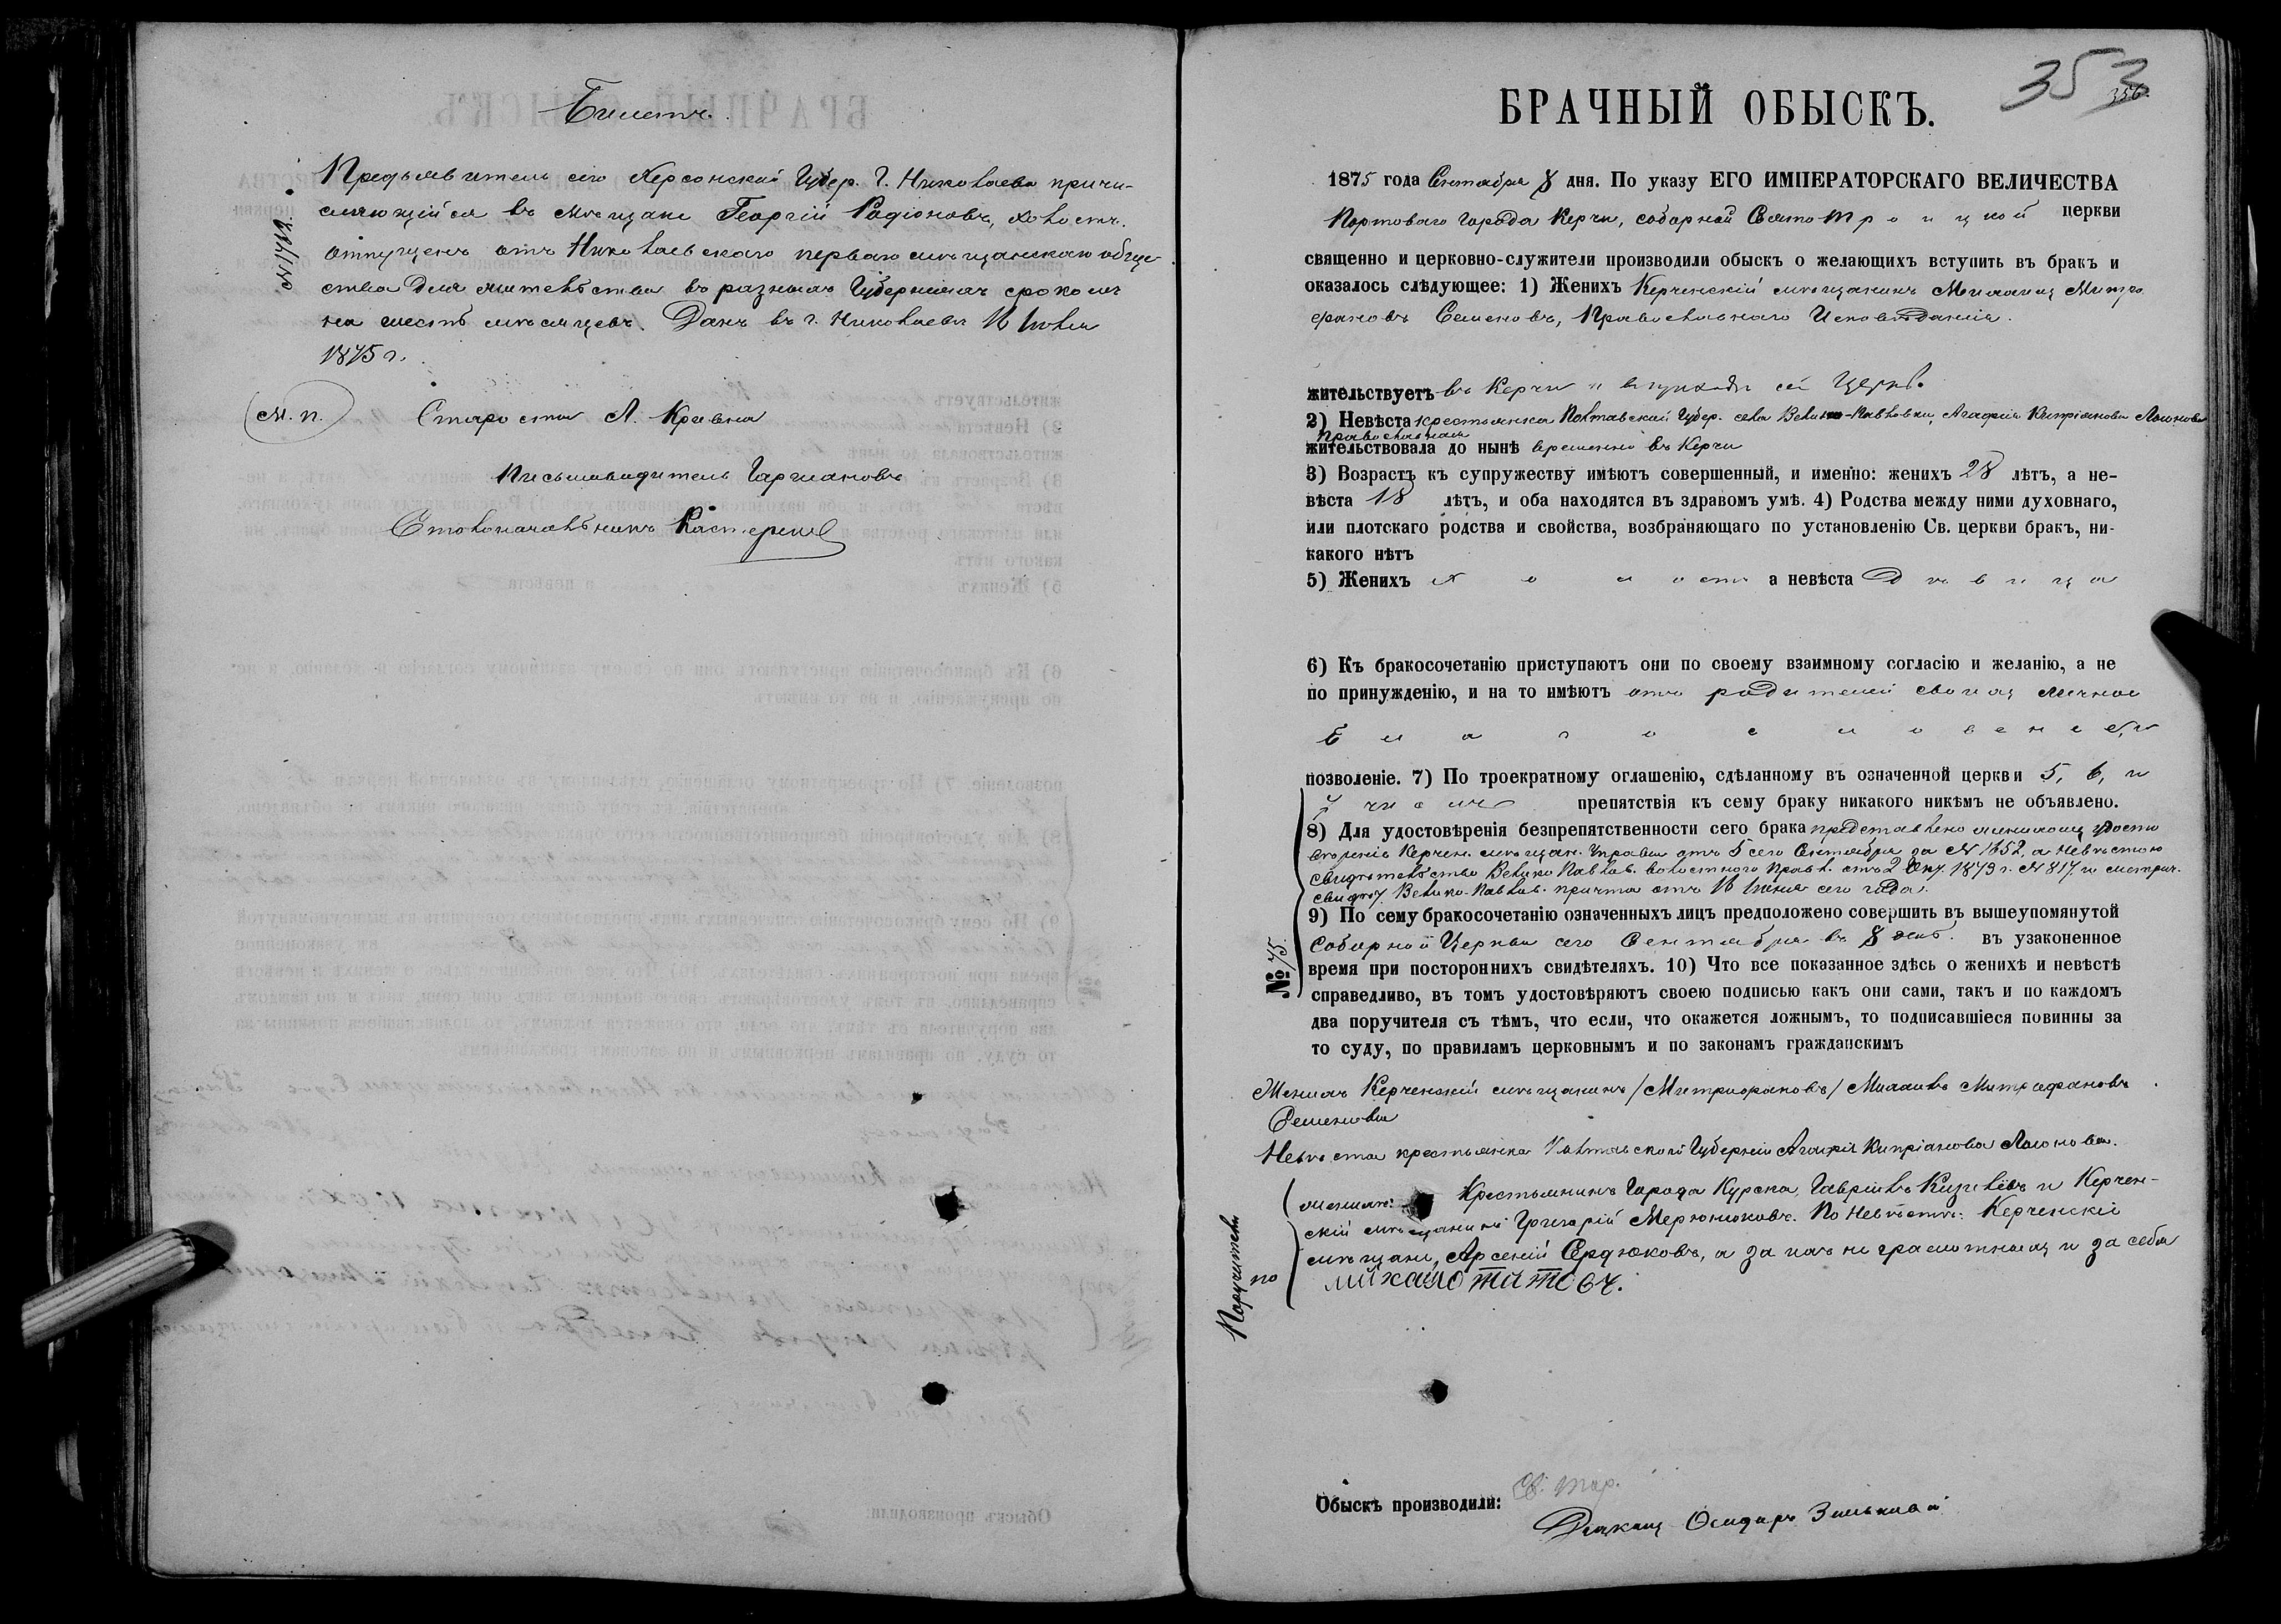 Билетъ.
№ 1712.
Предъявитель сего Херсонской Губер. Г. Николаева причи-
сляющійся въ мѣщане Георгій Радіоновъ, холостъ.
отпущенъ отъ Николаевскаго перваго мѣщанскаго обще-
ства для жительства въ разныхъ Губерніяхъ срокомъ
на шесть мѣсяцевъ. Данъ въ г. Николаевѣ 16 Іюля
1875 г.
М. П. Староста Л. Кривна
Письмоводитель
Столоначальникъ
353
356.
БРАЧНЫЙ ОБЫСКЪ.
1875 года Сентября 8 дня. По указу ЕГО ИМПЕРАТОРСКАГО ВЕЛИЧЕСТВА
Портоваго города Керчи, соборной Свято Троицкой церкви
священно и церковно-служители производили обыскъ о желающихъ вступить въ бракъ и
оказалось слѣдующее: 1) Женихъ Керченскій мѣщанинъ Михаилъ Митро
фановъ Семеновъ, Православнаго Исповѣданія.
жительствуетъ въ Керчи и въ приходѣ сей Церкв.
2) Невѣста крестьянка Полтавской Губер. села Велико-Павловки, Агафія Кипріанова
Православная
жительствовала до нынѣ временно въ Керчи
3) Возрастъ къ супружеству имѣютъ совершенный, и именно: женихъ 28 лѣтъ, а не-
вѣста 18 лѣтъ, и оба находятся въ здравомъ умѣ. 4) Родства между ними духовнаго,
или плотскаго родства и свойства, возбраняющаго по установленію Св. церкви бракъ, ни-
какого нѣтъ
5) Женихъ холостъ а невѣста Дѣвица
6) Къ бракосочетанію приступаютъ они по своему взаимному согласію и желанію, а не
по принужденію, и на то имѣютъ отъ родителей своихъ личное
Благословеніе и
позволеніе. 7) По троекратному оглашенію, сдѣланному въ означенной церкви 5, 6, и
7 чиселъ препятствія къ сему браку никакого никѣмъ не объявлено.
8) Для удостовѣренія безпрепятственности сего брака представлено женихомъ удосто
вѣреніе Керчен. мѣщан. Управы отъ 5 сего Сентября за № 1652, а Невѣстою
свидѣтельство Велико Павлов. волостного Правл. отъ 2 Окт. 1873 г. № 817. и метрич.
свидѣт. Велико-Павлов. причта отъ 16 Іюня сего года.
9) По сему бракосочетанію означенныхъ лицъ предположено совершить въ вышеупомянутой
Соборной Церкви сего Сентября въ 8 день. въ узаконенное
время при постороннихъ свидѣтеляхъ. 10) Что все показанное здѣсь о женихѣ и невѣстѣ
справедливо, въ томъ удостовѣряютъ своею подписью какъ они сами, такъ и по каждомъ
два поручителя съ тѣмъ, что если, что окажется ложнымъ, то подписавшіеся повинны за
то суду, по правиламъ церковнымъ и по законамъ гражданскимъ
№ 75.
Женихъ Керченскій мѣщанинъ /Митрофановъ/ Михаилъ Митрофановъ
Семеновъ
Невѣста крестьянка Полтавской Губерніи Агафія Кипріанова
Поручители по
жениху: Крестьянинъ Города Курска, Гавріилъ и Керчен-
скій мѣщанинъ Григорій Мерзюковъ. По Невѣстѣ: Керченскіе
мѣщане, Арсеній Сердюковъ, а за ихъ неграмотныхъ и за себя
михаило титовъ.
Обыскъ производили: Св. Мар.
Дьяконъ